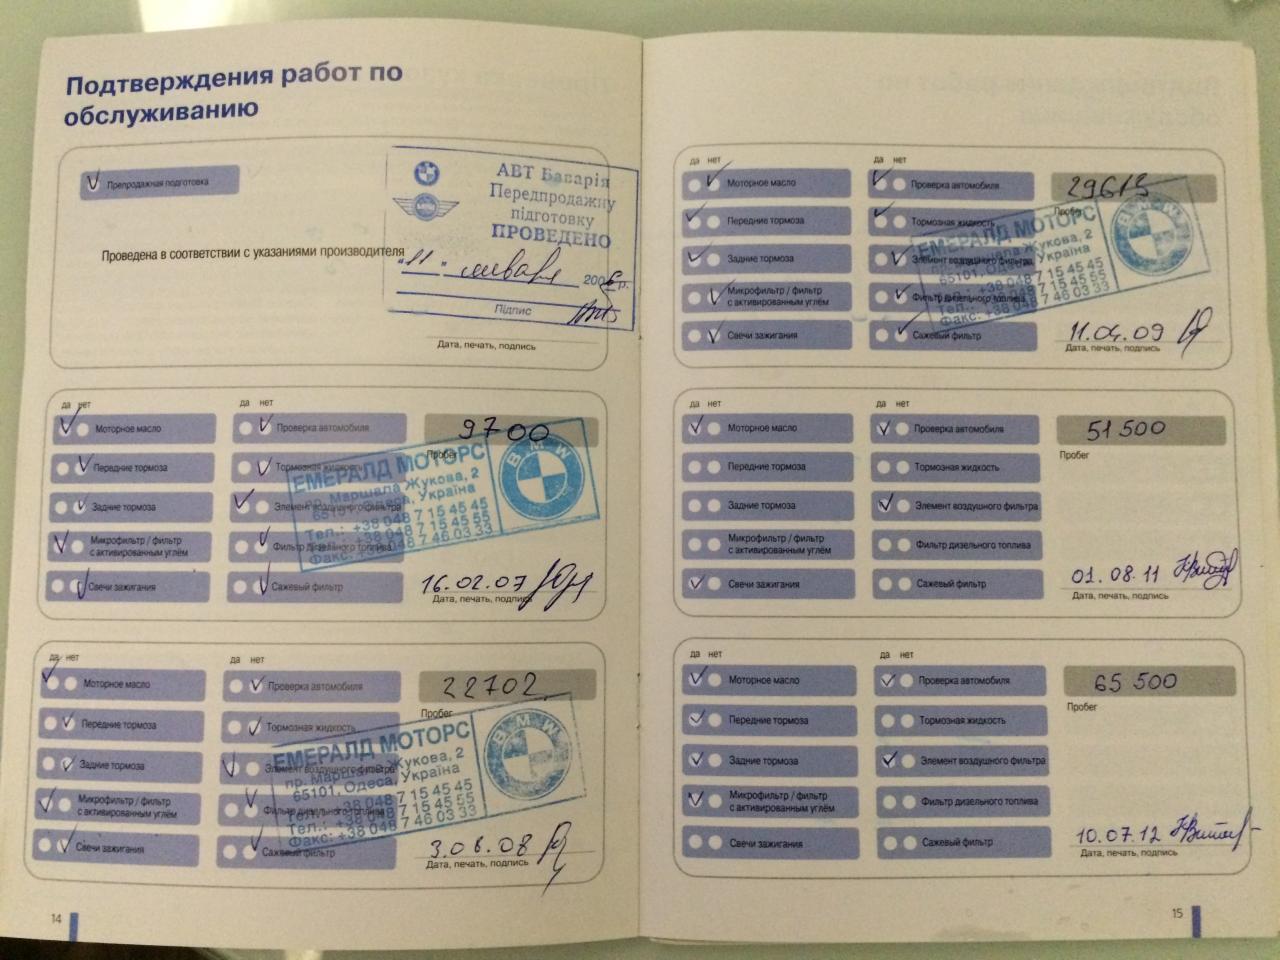 Подтверждения работ по
обслуживанию
Препродажная подготовка
Проведена в соответствии с указаниями производителя
АВТ Баварія
Передпродажну
підготовку
ПРОВЕДЕНО
"11" января 2006 р.
Підпис
Дата, печать, подпись
да нет
да нет
Моторное масло
Проверка автомобиля
9700
Пробег
Передние тормоза
Тормозная жидкость
Задние тормоза
Элемент воздушного фильтра
Микрофильтр / фильтр
с активированным углём
Фильтр дизельного топлива
Свечи зажигания
Сажевый фильтр
ЕМЕРАЛД МОТОРС
пр. Маршала Жукова, 2
65101, Одеса, Україна
Тел.: +38 048 7 15 45 45
+38 048 7 15 45 55
Факс: +38 048 7 46 03 33
BMW
16.02.07
Дата, печать, подпись
да нет
да нет
Моторное масло
Проверка автомобиля
22702
Пробег
Передние тормоза
Тормозная жидкость
Задние тормоза
Элемент воздушного фильтра
Микрофильтр / фильтр
с активированным углём
Фильтр дизельного топлива
Свечи зажигания
Сажевый фильтр
ЕМЕРАЛД МОТОРС
пр. Маршала Жукова, 2
65101, Одеса, Україна
+38 048 7 15 45 45
Тел.: +38 048 7 15 45 55
Факс: +38 048 7 46 03 33
BMW
3.06.08
Дата, печать, подпись
14
да нет
да нет
Моторное масло
Проверка автомобиля
29613
Пробег
Передние тормоза
Тормозная жидкость
Задние тормоза
Элемент воздушного фильтра
Микрофильтр / фильтр
с активированным углём
Фильтр дизельного топлива
Свечи зажигания
Сажевый фильтр
ЕМЕРАЛД МОТОРС
пр. Маршала Жукова, 2
65101, Одеса, Україна
Тел.: +38 048 7 15 45 45
+38 048 7 15 45 55
Факс: +38 048 7 46 03 33
BMW
11.04.09
Дата, печать, подпись
да нет
да нет
Моторное масло
Проверка автомобиля
51500
Пробег
Передние тормоза
Тормозная жидкость
Задние тормоза
Элемент воздушного фильтра
Микрофильтр / фильтр
с активированным углём
Фильтр дизельного топлива
Свечи зажигания
Сажевый фильтр
01.08.11
Дата, печать, подпись
да нет
да нет
Моторное масло
Проверка автомобиля
65 500
Пробег
Передние тормоза
Тормозная жидкость
Задние тормоза
Элемент воздушного фильтра
Микрофильтр / фильтр
с активированным углём
Фильтр дизельного топлива
Свечи зажигания
Сажевый фильтр
10.07.12
Дата, печать, подпись
15